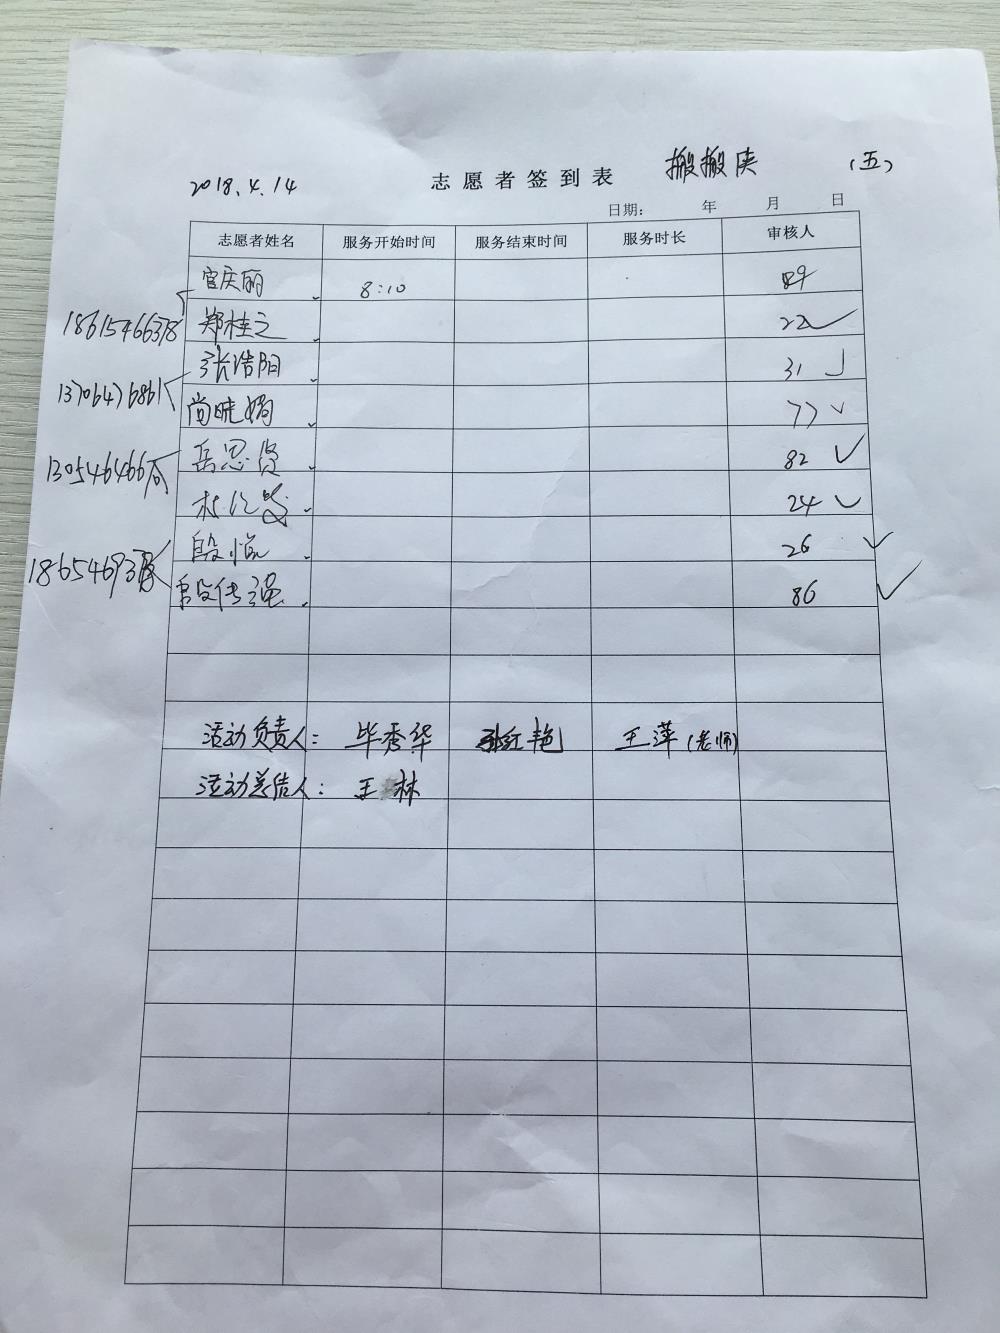 2018.4.14 志愿者签到表 搬搬侠 (五)
日期: 年 月 日
志愿者姓名 服务开始时间 服务结束时间 服务时长 审核人
官庆丽 8:10 89
18615466378 郑桂之 22
张浩阳 31
13706476861 尚晓娟 77
岳思贤 82
24
段恒 26
段传强 86
活动负责人: 毕秀华 张红艳 王萍(老师)
活动总结人: 王林